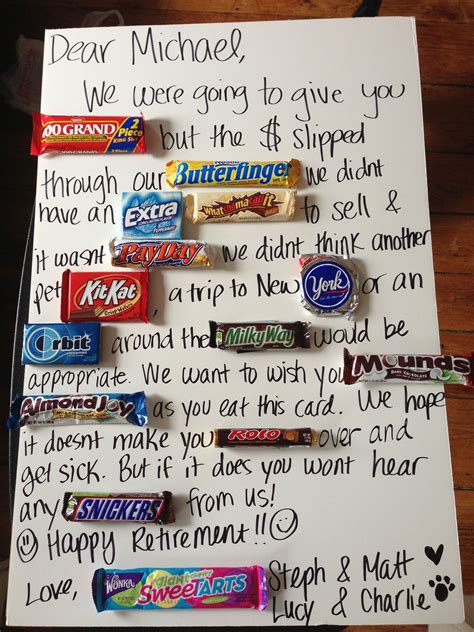 Dear Michael,
We were going to give you
100 GRAND 2 Piece King Size but the $ slipped
through our Butterfinger we didnt
have an Extra PEPPERMINT Whatchamacallit to sell &
it wasnt PayDay we didnt think another
pet KitKat, a trip to New York or an
Orbit around the MilkyWay would be
appropriate. We want to wish you Mounds
Almond Joy as you eat this card. We hope
it doesnt make you ROLO over and
get sick. But if it does you wont hear
any SNICKERS from us!
Happy Retirement!!
Love, WONKA GIANT chewy SWEETARTS Steph & Matt
Lucy & Charlie